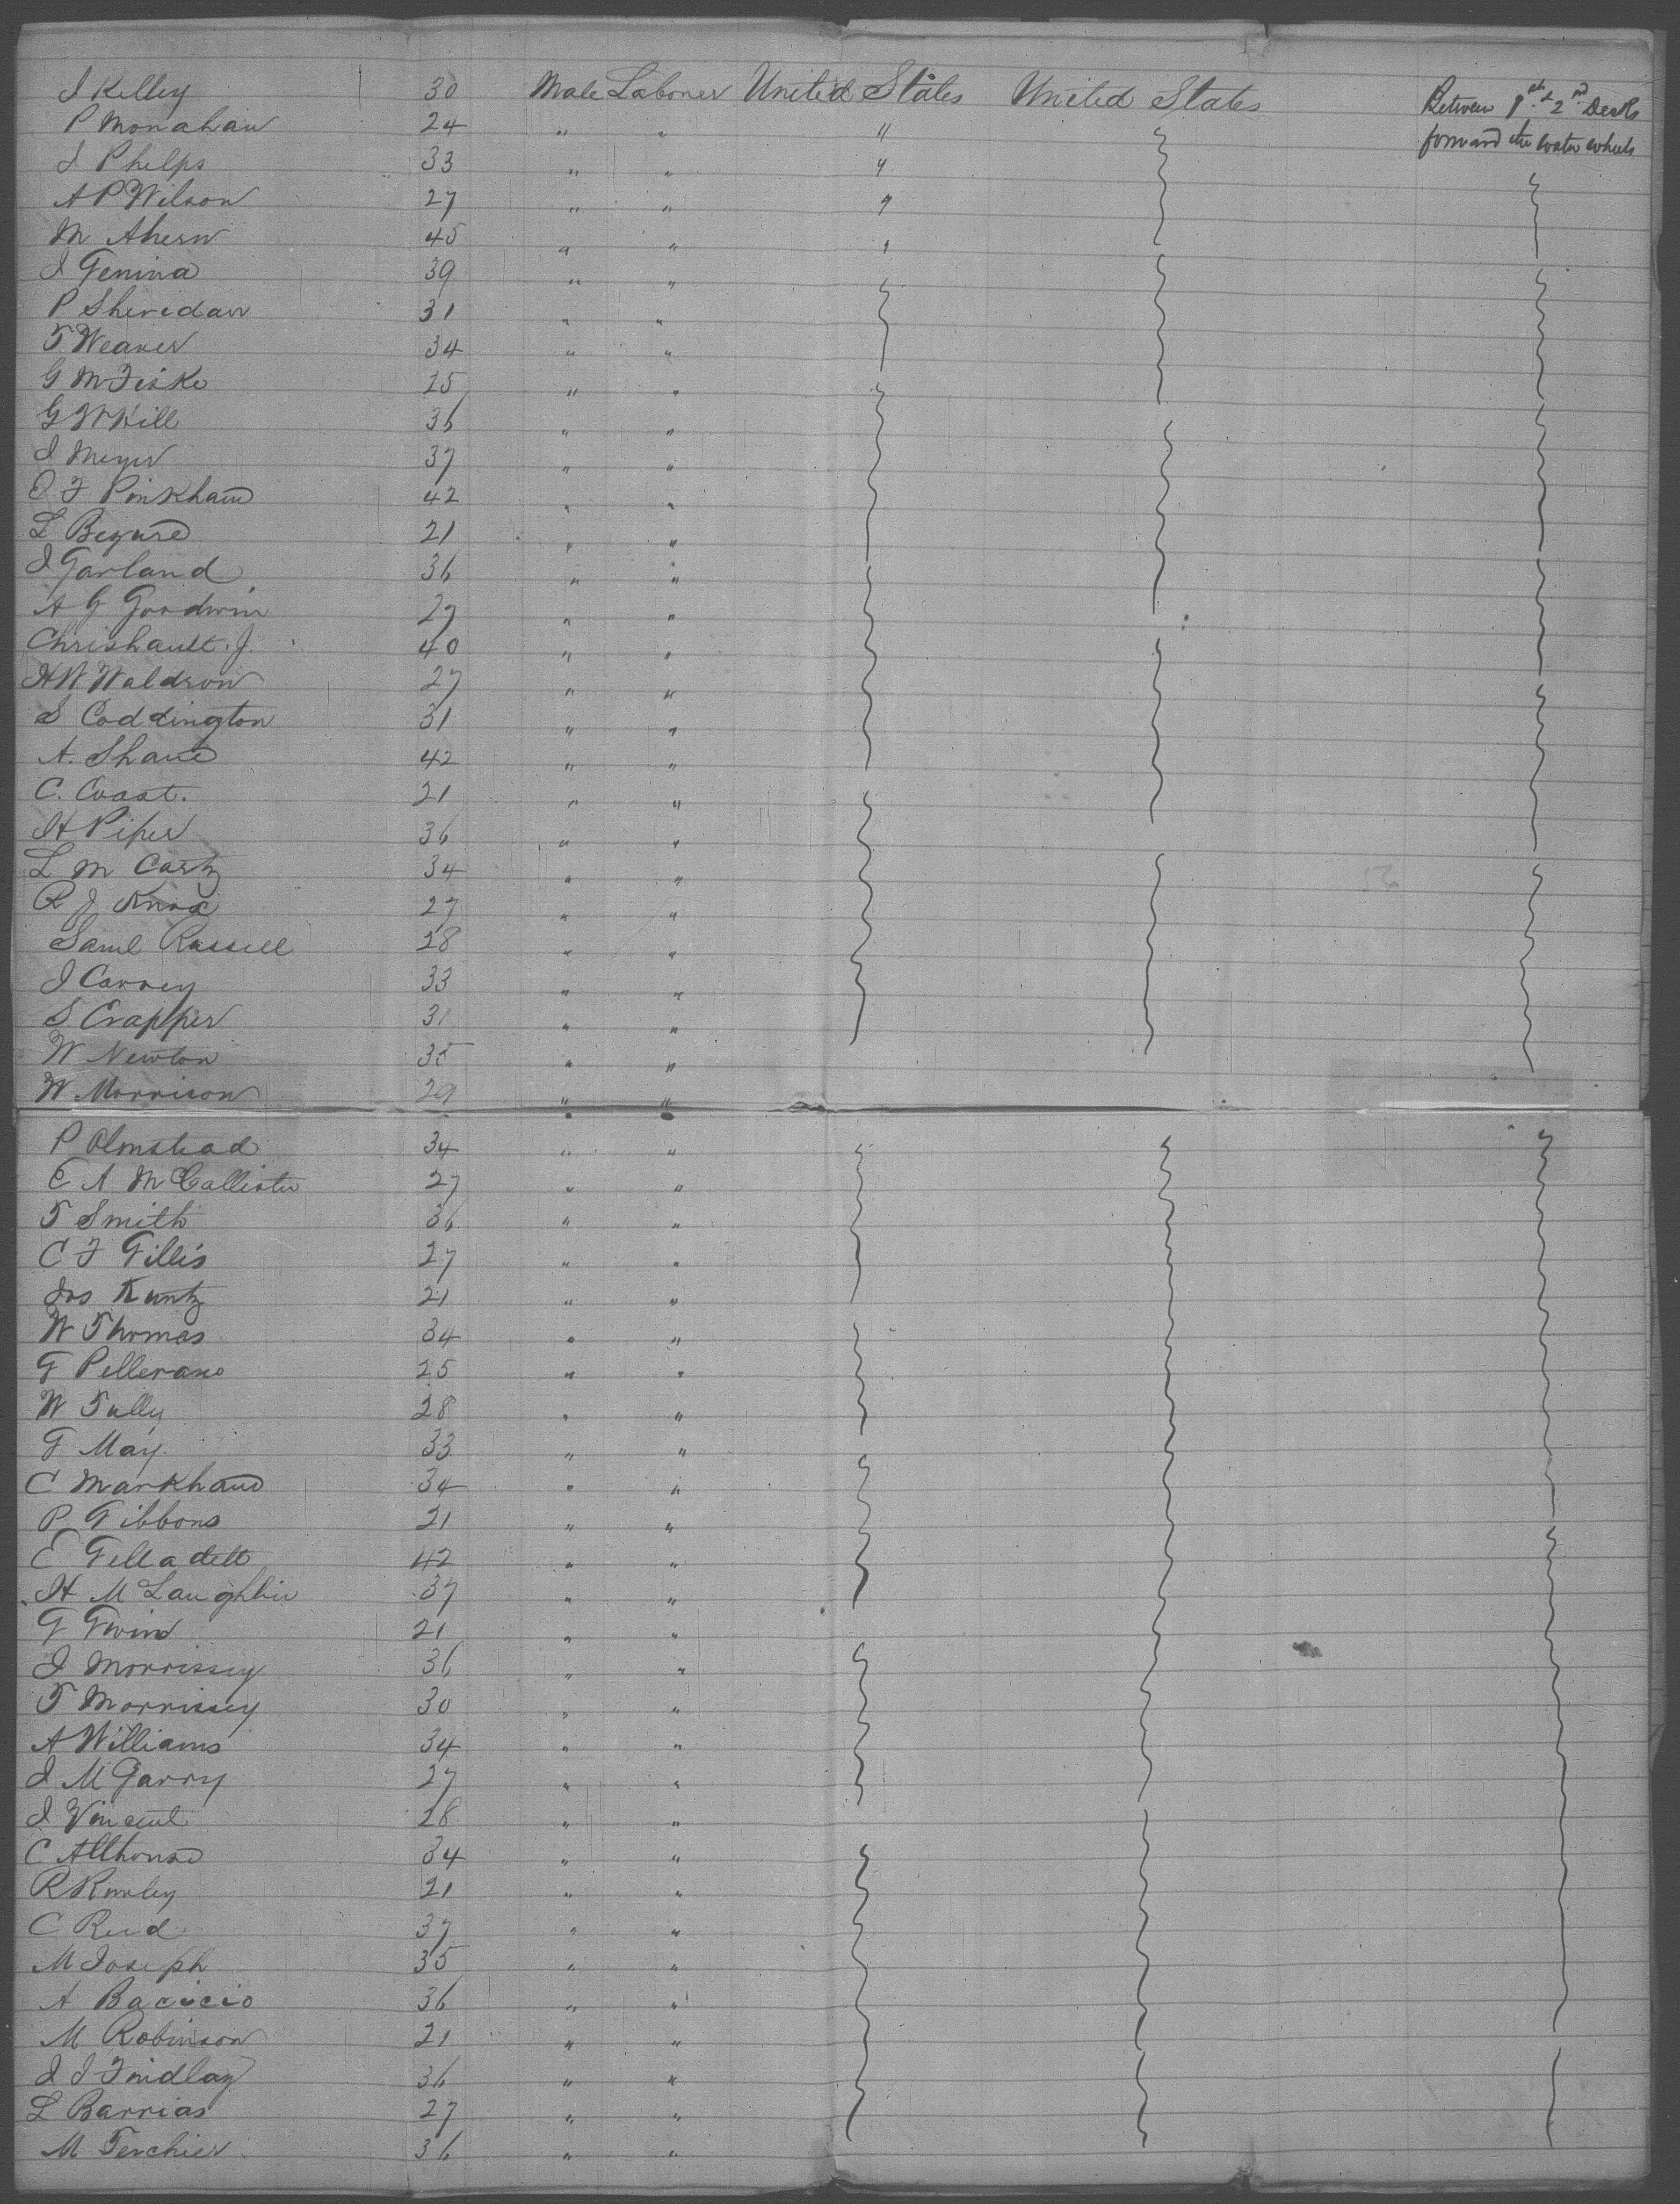 J Kelley 30 Male Laborer United States United States Between 1st & 2nd Decks
P Monahan 24 " " " forward the water wheels
J Phelps 33 " " "
A P Wilson 27 " " "
M Ahern 45 " " "
J Femina 39 " "
P Sheridan 31 " "
T Weaver 34 " "
G M Fiske 25 " "
G W Hill 36 " "
J Meyer 37 " "
O F Pinkham 42 " "
L 21 " "
J Garland 36 " "
A G Goodwin 27 " "
Chrishault. J. 40 " "
H W Waldron 27 " "
S Coddington 31 " "
A. Shane 42 " "
C. Coast. 21 " "
H Piper 36 " "
L M Carty 34 " "
R J Knox 27 " "
Saml Russell 28 " "
J Carrey 33 " "
S Crapper 31 " "
W Newton 35 " "
W Morrison 29 " "
P Olmstead 34 " "
C A McCallister 27 " "
T Smith 36 " "
C F Gillis 27 " "
Jos Kuntz 21 " "
W Thomas 34 " "
F Pellerano 25 " "
W Tully 28 " "
F May. 33 " "
C Markham 34 " "
P Gibbons 21 " "
E 42 " "
H McLaughlin 37 " "
G Gwin 21 " "
J Morrissey 36 " "
T Morrissey 30 " "
A Williams 34 " "
J McGarry 27 " "
J Vincent 28 " "
C Allhouse 34 " "
R Rowley 21 " "
C Reed 37 " "
M Joseph 35 " "
A Bacicio 36 " "
M Robinson 21 " "
J J Findlay 36 " "
L Barrias 27 " "
M Terchier 36 " "